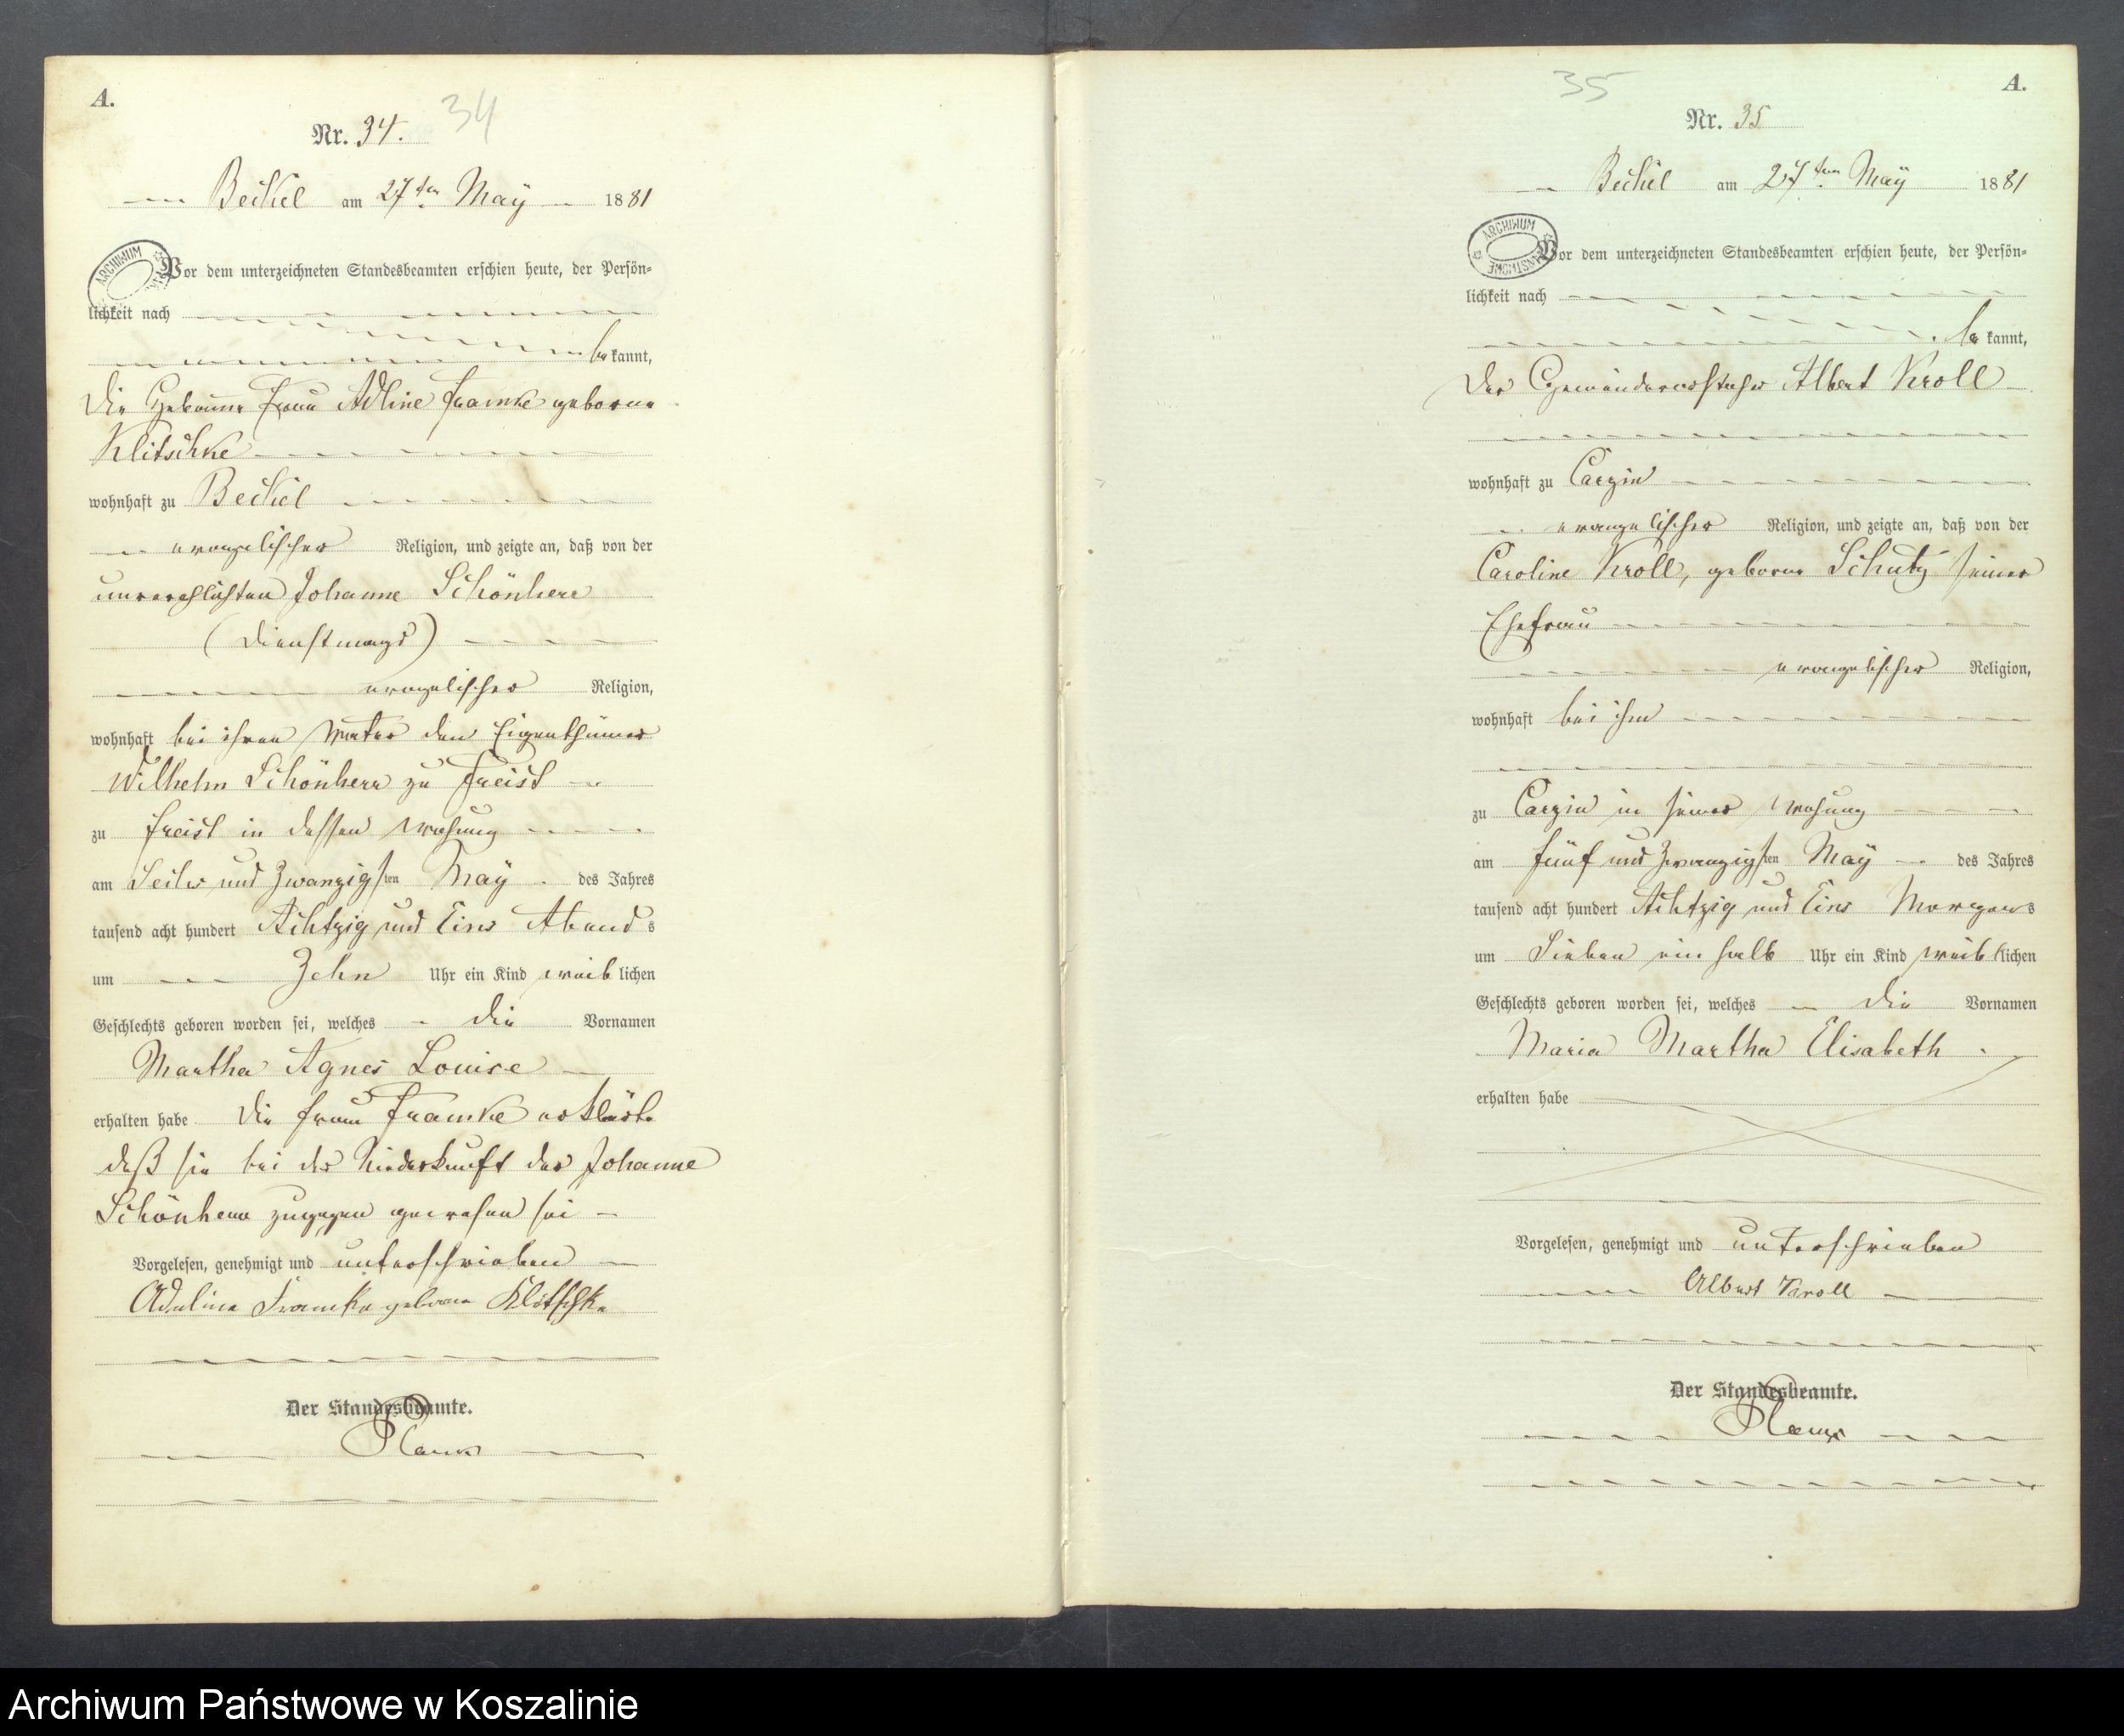 A.
Nr. 34. 34
Beckel am 27ten May 1881
ARCHIWUM
Vor dem unterzeichneten Standesbeamten erschien heute, der Persön-
lichkeit nach
bekannt,
die Hebamme Frau Adline Framke geborne
Klitschke
wohnhaft zu Beckel
evangelischer Religion, und zeigte an, daß von der
unverehlichten Johanne Schönherr
(Dienstmagd)
evangelischer Religion,
wohnhaft bei ihren Vater den Eigenthümer
Wilhelm Schönherr zu Freist
zu Freist in dessen Wohnung
am Sechs und Zwanzigsten May des Jahres
tausend acht hundert Achtzig und Eins Abends
um Zehn Uhr ein Kind weiblichen
Geschlechts geboren worden sei, welches die Vornamen
Martha Agnes Louise
erhalten habe die Frau Framke erklärte
daß sie bei der Niederkunft der Johanne
Schönherr zugegen gewesen sei
Vorgelesen, genehmigt und unterschrieben
Adeline Framke geborne Klitschke
Der Standesbeamte.
35 A.
Nr. 35
Beckel am 27ten May 1881
ARCHIWUM
Vor dem unterzeichneten Standesbeamten erschien heute, der Persön-
lichkeit nach
bekannt,
der Gemeindevorsteher Albert Kroll
wohnhaft zu Carzin
evangelischer Religion, und zeigte an, daß von der
Caroline Kroll, geborne Schutz seiner
Ehefrau
evangelischer Religion,
wohnhaft bei ihm
zu Carzin in seiner Wohung
am fünf und Zwanzigsten May des Jahres
tausend acht hundert Achtzig und Eins Morgens
um Sieben ein halb Uhr ein Kind weiblichen
Geschlechts geboren worden sei, welches die Vornamen
Maria Martha Elisabeth
erhalten habe
Vorgelesen, genehmigt und unterschrieben
Albert Kroll
Der Standesbeamte.
Archiwum Państwowe w Koszalinie